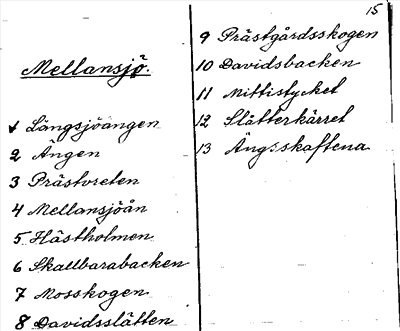 Mellansjö.
1 Långsjöängen
2 Ängen
3 Prästvreten
4 Mellansjöån
5 Hästholmen
6 Skallbarabacken
7 Mosskogen
8 Davidsslätten
15
9 Prästgårdsskogen
10 Davidsbacken
11 Mittistycket
12 Slätterkärret
13 Ängsskaftena